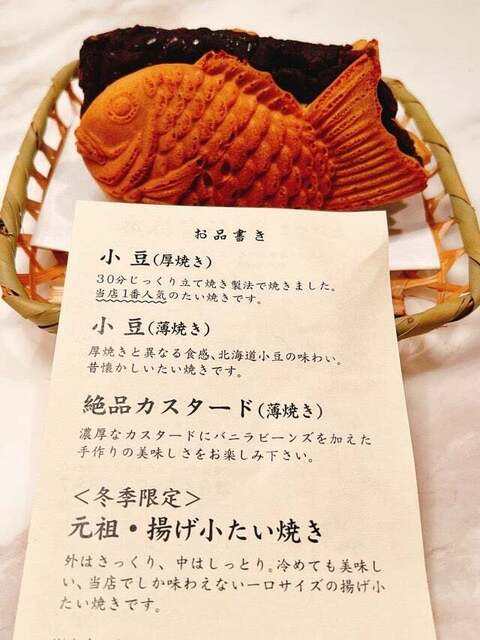 お品書き
小豆(厚焼き)
30分じっくり立て焼き製法で焼きました。
当店1番人気のたい焼きです。
小豆(薄焼き)
厚焼きと異なる食感、北海道小豆の味わい。
昔懐かしいたい焼きです。
絶品カスタード(薄焼き)
濃厚なカスタードにバニラビーンズを加えた
手作りの美味しさをお楽しみ下さい。
＜冬季限定＞
元祖・揚げ小たい焼き
外はさっくり、中はしっとり。冷めても美味し
い、当店でしか味わえない一口サイズの揚げ小
たい焼きです。